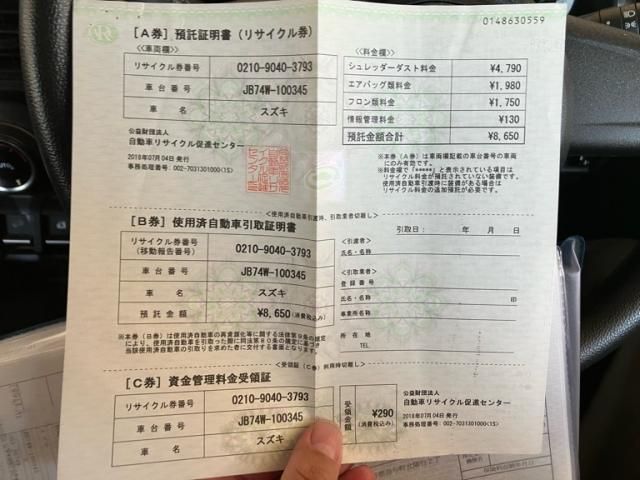 0148630559
[A券] 預託証明書（リサイクル券）
《車両欄》
リサイクル券番号 0210-9040-3793
車台番号 JB74W-100345
車名 スズキ
公益財団法人
自動車リサイクル促進センター
2018年07月04日 発行
事務処理番号: 002-7031301000<1S>
《料金欄》
シュレッダーダスト料金 ¥4,790
エアバッグ類料金 ¥1,980
フロン類料金 ¥1,750
情報管理料金 ¥130
預託金額合計 ¥8,650
※本券（A券）は車両欄記載の車台番号の車両
にのみ有効です。
※料金欄で「*****」と表示されている項目は
リサイクル料金が預託されていない装備です。
使用済自動車引渡時に装備がある場合は
リサイクル料金の追加預託が必要です。
<使用済自動車引渡時、引取業者切離し>
[B券] 使用済自動車引取証明書
リサイクル券番号
(移動報告番号) 0210-9040-3793
車台番号 JB74W-100345
車名 スズキ
預託金額 ¥8,650(消費税込み)
※本券（B券）は使用済自動車の再資源化等に関する法律第9条の規定
により、使用済自動車を引取った際に同法第80条の規定に基づき
当該使用済自動車の引取りを求めた者に交付する書面となります。
引取日: 年 月 日
<引渡者>
氏名・名称
<引取業者>
登録番号
氏名・名称 印
事業所名称
所在地
TEL
<受領証（C券）利用時切離し>
[C券] 資金管理料金受領証
リサイクル券番号 0210-9040-3793
車台番号 JB74W-100345
車名 スズキ
受領金額 ¥290
(消費税込み)
公益財団法人
自動車リサイクル促進センター
2018年07月04日 発行
事務処理番号: 002-7031301000<1S>